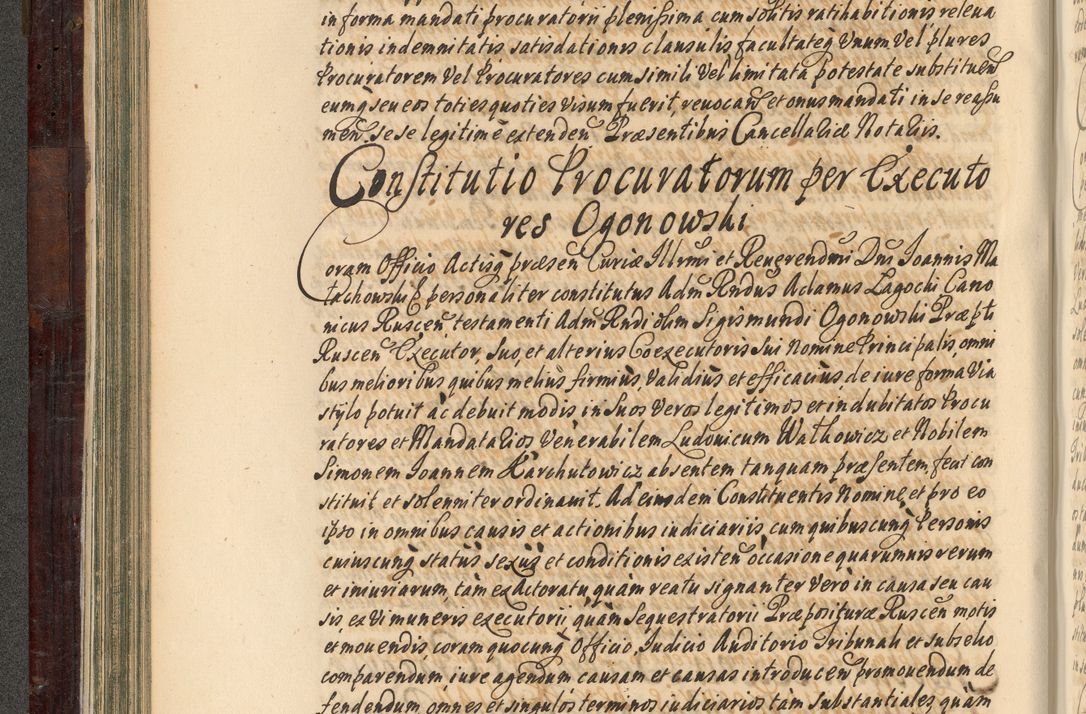 in forma mandati procuratorii plenissima cum solitis ratihabitionis releva
tionis indemnitatis satisdationis clausulis facultateq Unum Vel plures
Procuratorem Vel Procuratores cum simili Vel limitata potestate substituen
eumq seu eos toties quoties visum fuerit, revocan et onus mandati in se reassu
men, se se legitime extenden Præsentibus Cancellariæ Notariis.
Constitutio Procuratorum per Executo
res Ogonowski
Coram Officio Actisq præsen Curiæ Illrmi et Reverendmi Dni Joannis Ma
łachowski E personaliter constitutus Adm Rndus Adamus Łagocki Cano
nicus Ruscen testamenti Adm Rndi olim Sigismundi Ogonowski Præpti
Ruscen Executor, suo, et alterius Coexecutoris sui nomine Principalis, omni
bus melioribus quibus melius firmius, Validius et efficacius de iure forma Via
stylo potuit ac debuit modis in suos Veros legitimos et indubitatos Procu
ratores et Mandatarios Venerabilem Ludovicum Walkowicz et Nobilem
Simonem Joannem Karchutowicz absentem tanquam præsentem fecit con
stituit et solenniter ordinavit. Ad eiusdem Constituentis Nomine, et pro eo
ipso in omnibus causis et actionibus iudiciariis, cum quibuscunq Personis
cuiuscunq status sexus et conditionis existen occasione quarumvis rerum
et iniuriarum, tam ex Actoratu quam reatu signanter Vero in causa seu cau
sis, ex Vi muneris executorii quam Sequestratorii Præposituræ Ruscen motis
et movendis, coram quocunq Officio, Judicio Auditorio Tribunali et subselio
comparendum, iure agendum causam et causas introducen promovendum de
fendendum omnes et singulos terminos iudiciarios tam substantiales quam